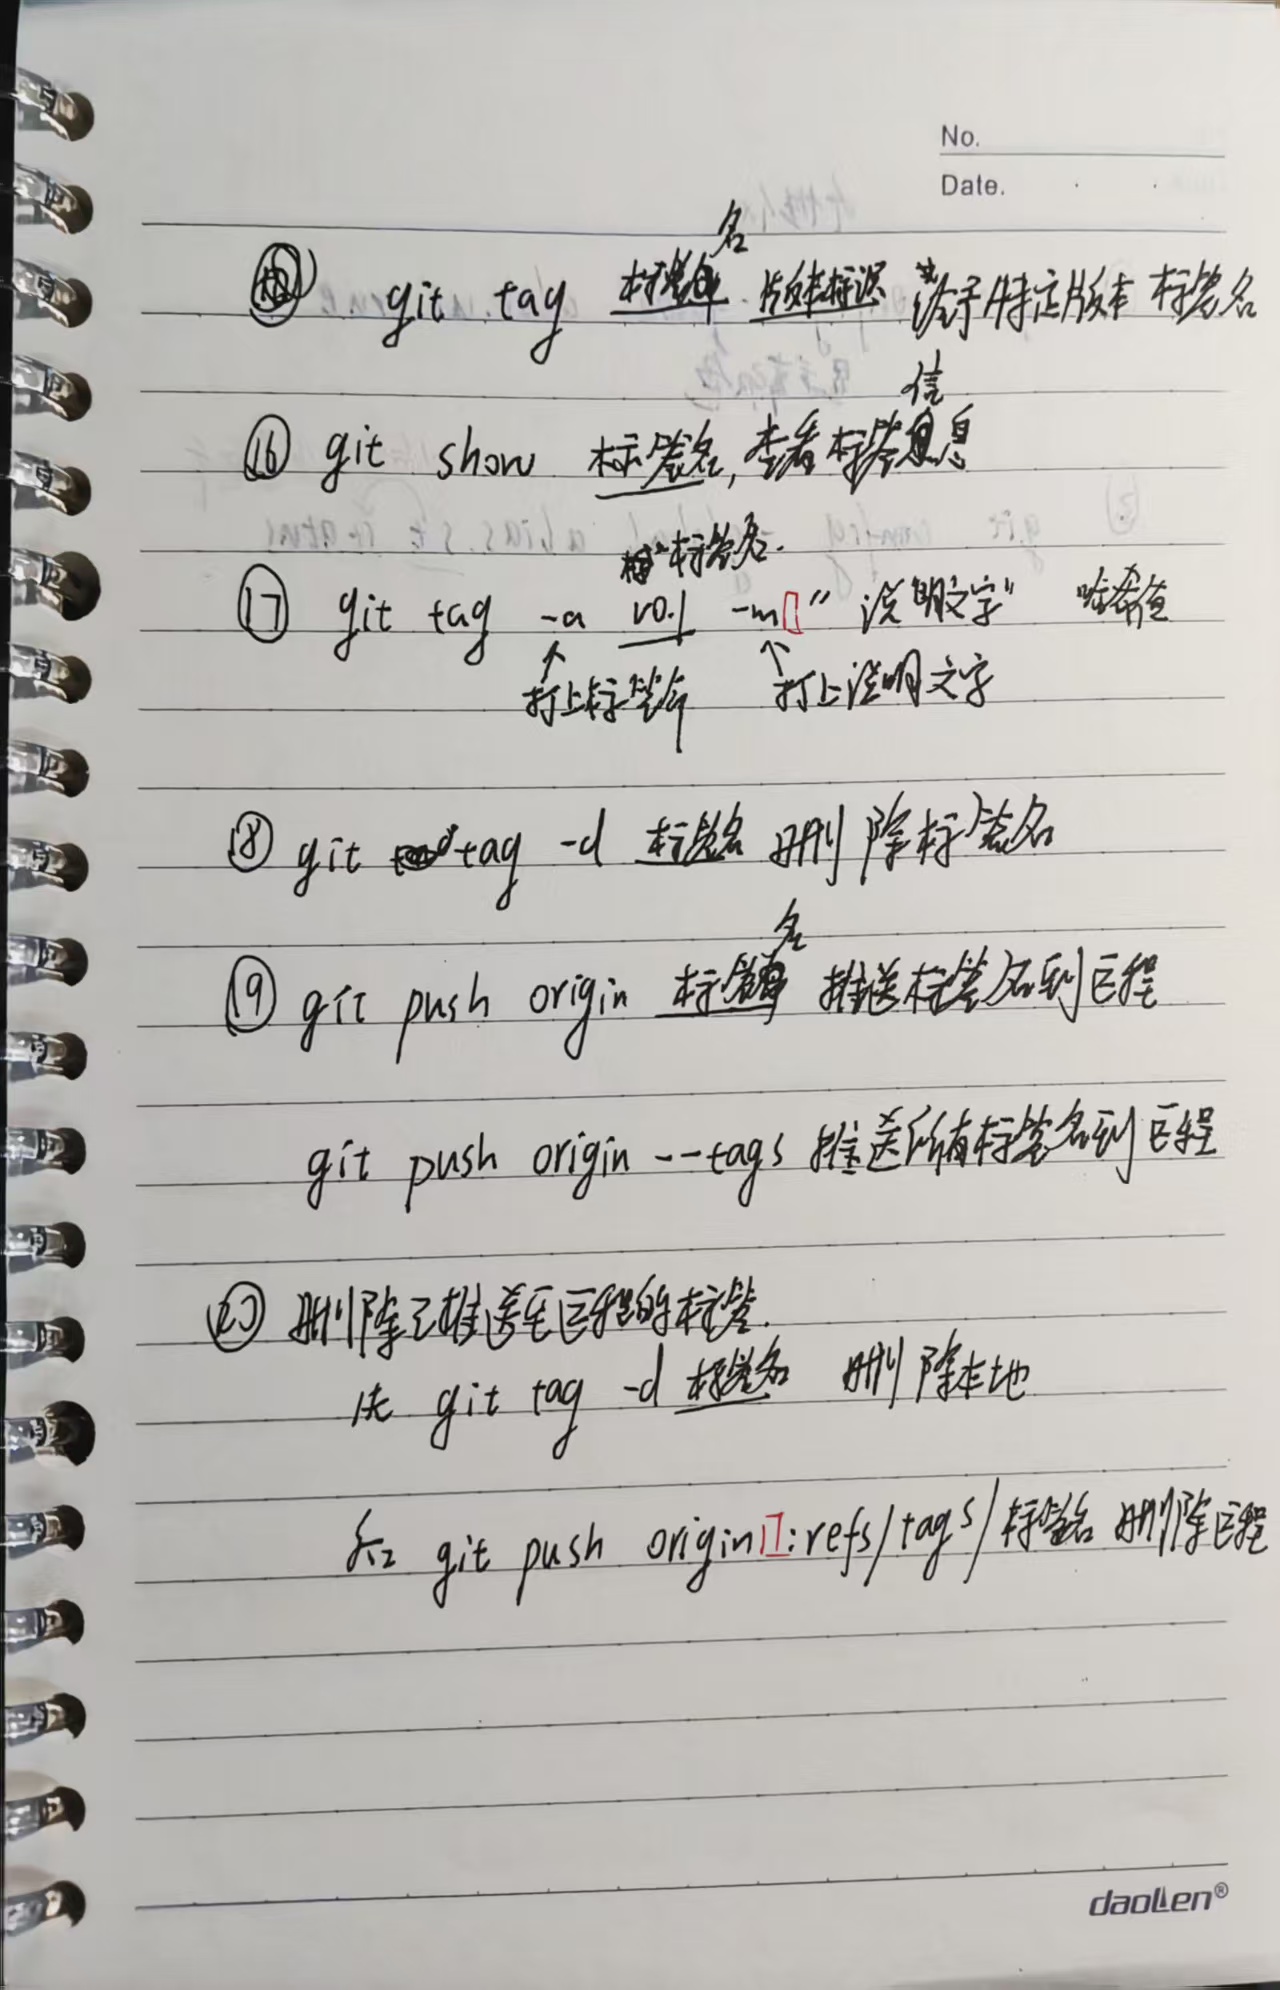 No.
Date.
git tag 标签名 版本标识 给予特定版本 标签名
⑯ git show 标签名, 查看标签信息
标签名.
⑰ git tag -a v0.1 -m "说明文字" 哈希值
打上标签 打上说明文字
⑱ git tag -d 标签名 删除标签名
⑲ git push origin 标签名 推送标签名到远程
git push origin --tags 推送所有标签名到远程
⑳ 删除已推送至远程的标签.
先 git tag -d 标签名 删除本地
后 git push origin :refs/tags/标签名 删除远程
daolen®